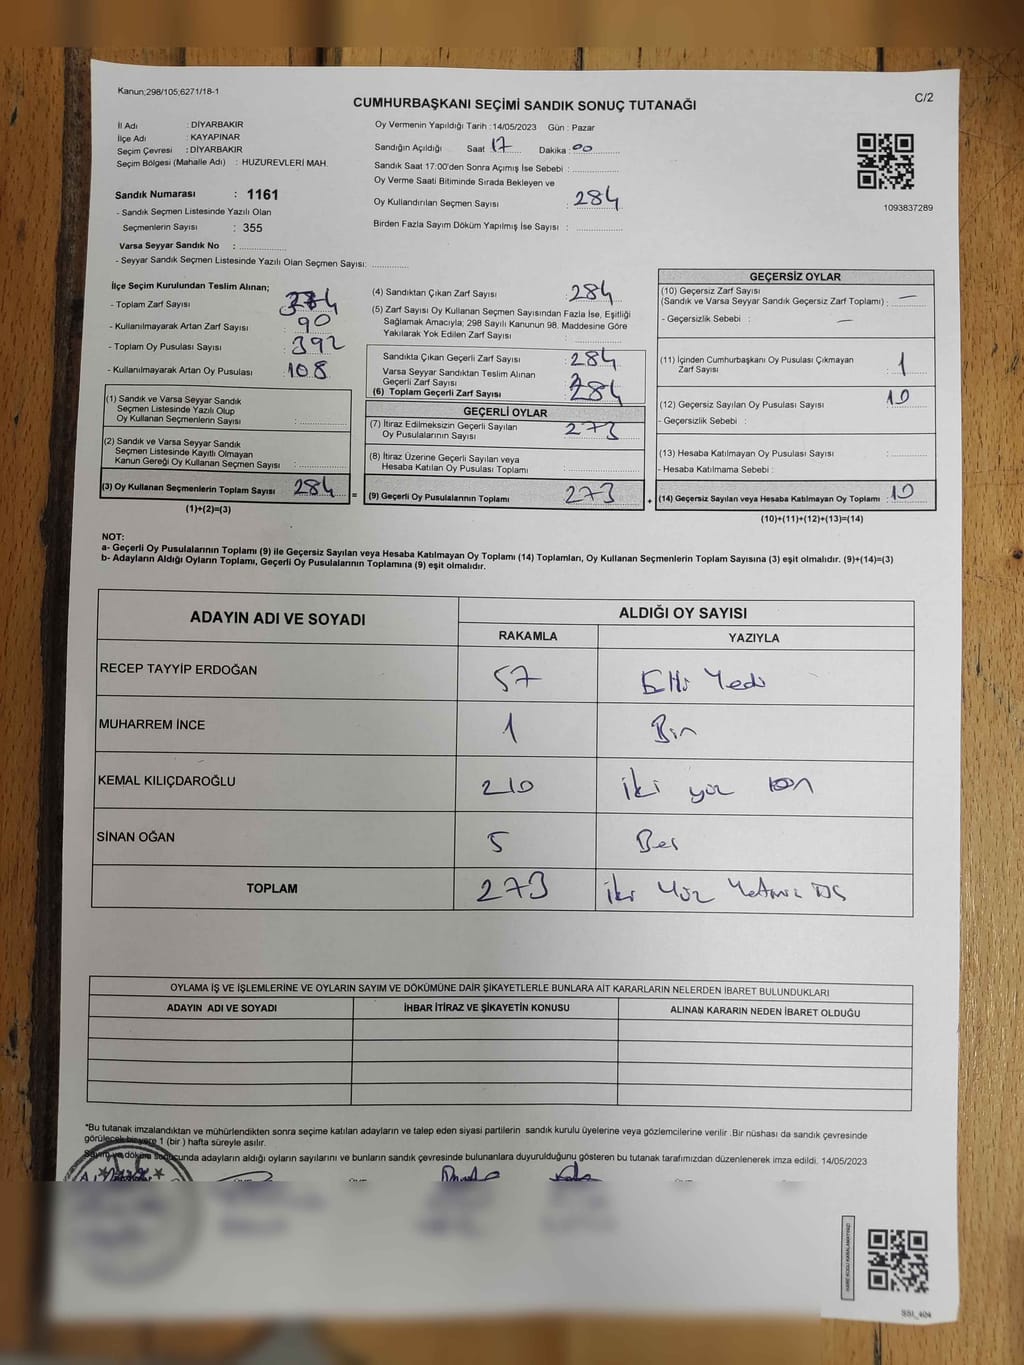 Kanun;298/105;6271/18-1
C/2
CUMHURBAŞKANI SEÇİMİ SANDIK SONUÇ TUTANAĞI
İl Adı : DİYARBAKIR
İlçe Adı : KAYAPINAR
Seçim Çevresi : DİYARBAKIR
Seçim Bölgesi (Mahalle Adı) : HUZUREVLERİ MAH.
Sandık Numarası : 1161
- Sandık Seçmen Listesinde Yazılı Olan
Seçmenlerin Sayısı : 355
Varsa Seyyar Sandık No : ..............
- Seyyar Sandık Seçmen Listesinde Yazılı Olan Seçmen Sayısı: ...........
Oy Vermenin Yapıldığı Tarih :14/05/2023 Gün : Pazar
Sandığın Açıldığı Saat 17 Dakika : 00
Sandık Saat 17:00'den Sonra Açımış İse Sebebi : ..............
Oy Verme Saati Bitiminde Sırada Bekleyen ve
Oy Kullandırılan Seçmen Sayısı : 284
Birden Fazla Sayım Döküm Yapılmış İse Sayısı : ..............
1093837289
İlçe Seçim Kurulundan Teslim Alınan;
- Toplam Zarf Sayısı :
- Kullanılmayarak Artan Zarf Sayısı : 90
- Toplam Oy Pusulası Sayısı : 392
- Kullanılmayarak Artan Oy Pusulası : 108
(1) Sandık ve Varsa Seyyar Sandık
Seçmen Listesinde Yazılı Olup
Oy Kullanan Seçmenlerin Sayısı : ..............
(2) Sandık ve Varsa Seyyar Sandık
Seçmen Listesinde Kayıtlı Olmayan
Kanun Gereği Oy Kullanan Seçmen Sayısı : ..............
(3) Oy Kullanan Seçmenlerin Toplam Sayısı 284 =
(1)+(2)=(3)
(4) Sandıktan Çıkan Zarf Sayısı : 284
(5) Zarf Sayısı Oy Kullanan Seçmen Sayısından Fazla İse, Eşitliği
Sağlamak Amacıyla; 298 Sayılı Kanunun 98. Maddesine Göre
Yakılarak Yok Edilen Zarf Sayısı : ..............
Sandıkta Çıkan Geçerli Zarf Sayısı : 284
Varsa Seyyar Sandıktan Teslim Alınan
Geçerli Zarf Sayısı :
(6) Toplam Geçerli Zarf Sayısı : 284
GEÇERLİ OYLAR
(7) İtiraz Edilmeksizin Geçerli Sayılan
Oy Pusulalarının Sayısı : 273
(8) İtiraz Üzerine Geçerli Sayılan veya
Hesaba Katılan Oy Pusulası Toplamı : ..............
(9) Geçerli Oy Pusulalarının Toplamı : 273 +
GEÇERSİZ OYLAR
(10) Geçersiz Zarf Sayısı
(Sandık ve Varsa Seyyar Sandık Geçersiz Zarf Toplamı) : —
- Geçersizlik Sebebi : —
(11) İçinden Cumhurbaşkanı Oy Pusulası Çıkmayan
Zarf Sayısı : 1
(12) Geçersiz Sayılan Oy Pusulası Sayısı : 10
- Geçersizlik Sebebi :
(13) Hesaba Katılmayan Oy Pusulası Sayısı : ..............
- Hesaba Katılmama Sebebi :
(14) Geçersiz Sayılan veya Hesaba Katılmayan Oy Toplamı : 10
(10)+(11)+(12)+(13)=(14)
NOT:
a- Geçerli Oy Pusulalarının Toplamı (9) ile Geçersiz Sayılan veya Hesaba Katılmayan Oy Toplamı (14) Toplamları, Oy Kullanan Seçmenlerin Toplam Sayısına (3) eşit olmalıdır. (9)+(14)=(3)
b- Adayların Aldığı Oyların Toplamı, Geçerli Oy Pusulalarının Toplamına (9) eşit olmalıdır.
ADAYIN ADI VE SOYADI ALDIĞI OY SAYISI
RAKAMLA YAZIYLA
RECEP TAYYİP ERDOĞAN 57 Elli Yedi
MUHARREM İNCE 1 Bir
KEMAL KILIÇDAROĞLU 210 iki yüz on
SİNAN OĞAN 5 Beş
TOPLAM 273 iki yüz yetmiş üç
OYLAMA İŞ VE İŞLEMLERİNE VE OYLARIN SAYIM VE DÖKÜMÜNE DAİR ŞİKAYETLERLE BUNLARA AİT KARARLARIN NELERDEN İBARET BULUNDUKLARI
ADAYIN ADI VE SOYADI İHBAR İTİRAZ VE ŞİKAYETİN KONUSU ALINAN KARARIN NEDEN İBARET OLDUĞU
*Bu tutanak imzalandıktan ve mühürlendikten sonra seçime katılan adayların ve talep eden siyasi partilerin sandık kurulu üyelerine veya gözlemcilerine verilir .Bir nüshası da sandık çevresinde
görülecek bir yere 1 (bir ) hafta süreyle asılır.
Sayım ve döküm sonucunda adayların aldığı oyların sayılarını ve bunların sandık çevresinde bulunanlara duyurulduğunu gösteren bu tutanak tarafımızdan düzenlenerek imza edildi. 14/05/2023
SSI_404